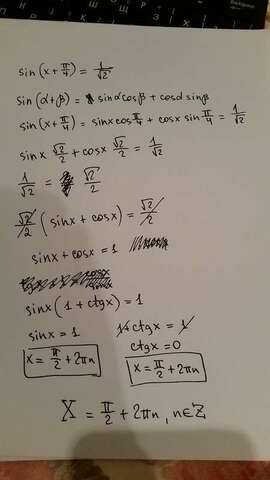 sin(x+π/4)=1/√2
sin(α+β)= sinαcosβ+cosα sinβ
sin(x+π/4)=sinxcosπ/4+cosx sinπ/4=1/√2
sinx √2/2+cosx √2/2=1/√2
1/√2 = √2/2
√2/2(sinx+cosx)=√2/2
sinx+cosx=1
sinx(1+ctgx)=1
sinx=1 1+ctgx=1
ctgx=0
x=π/2+2πn x=π/2+2πn
X=π/2+2πn, n∈Z